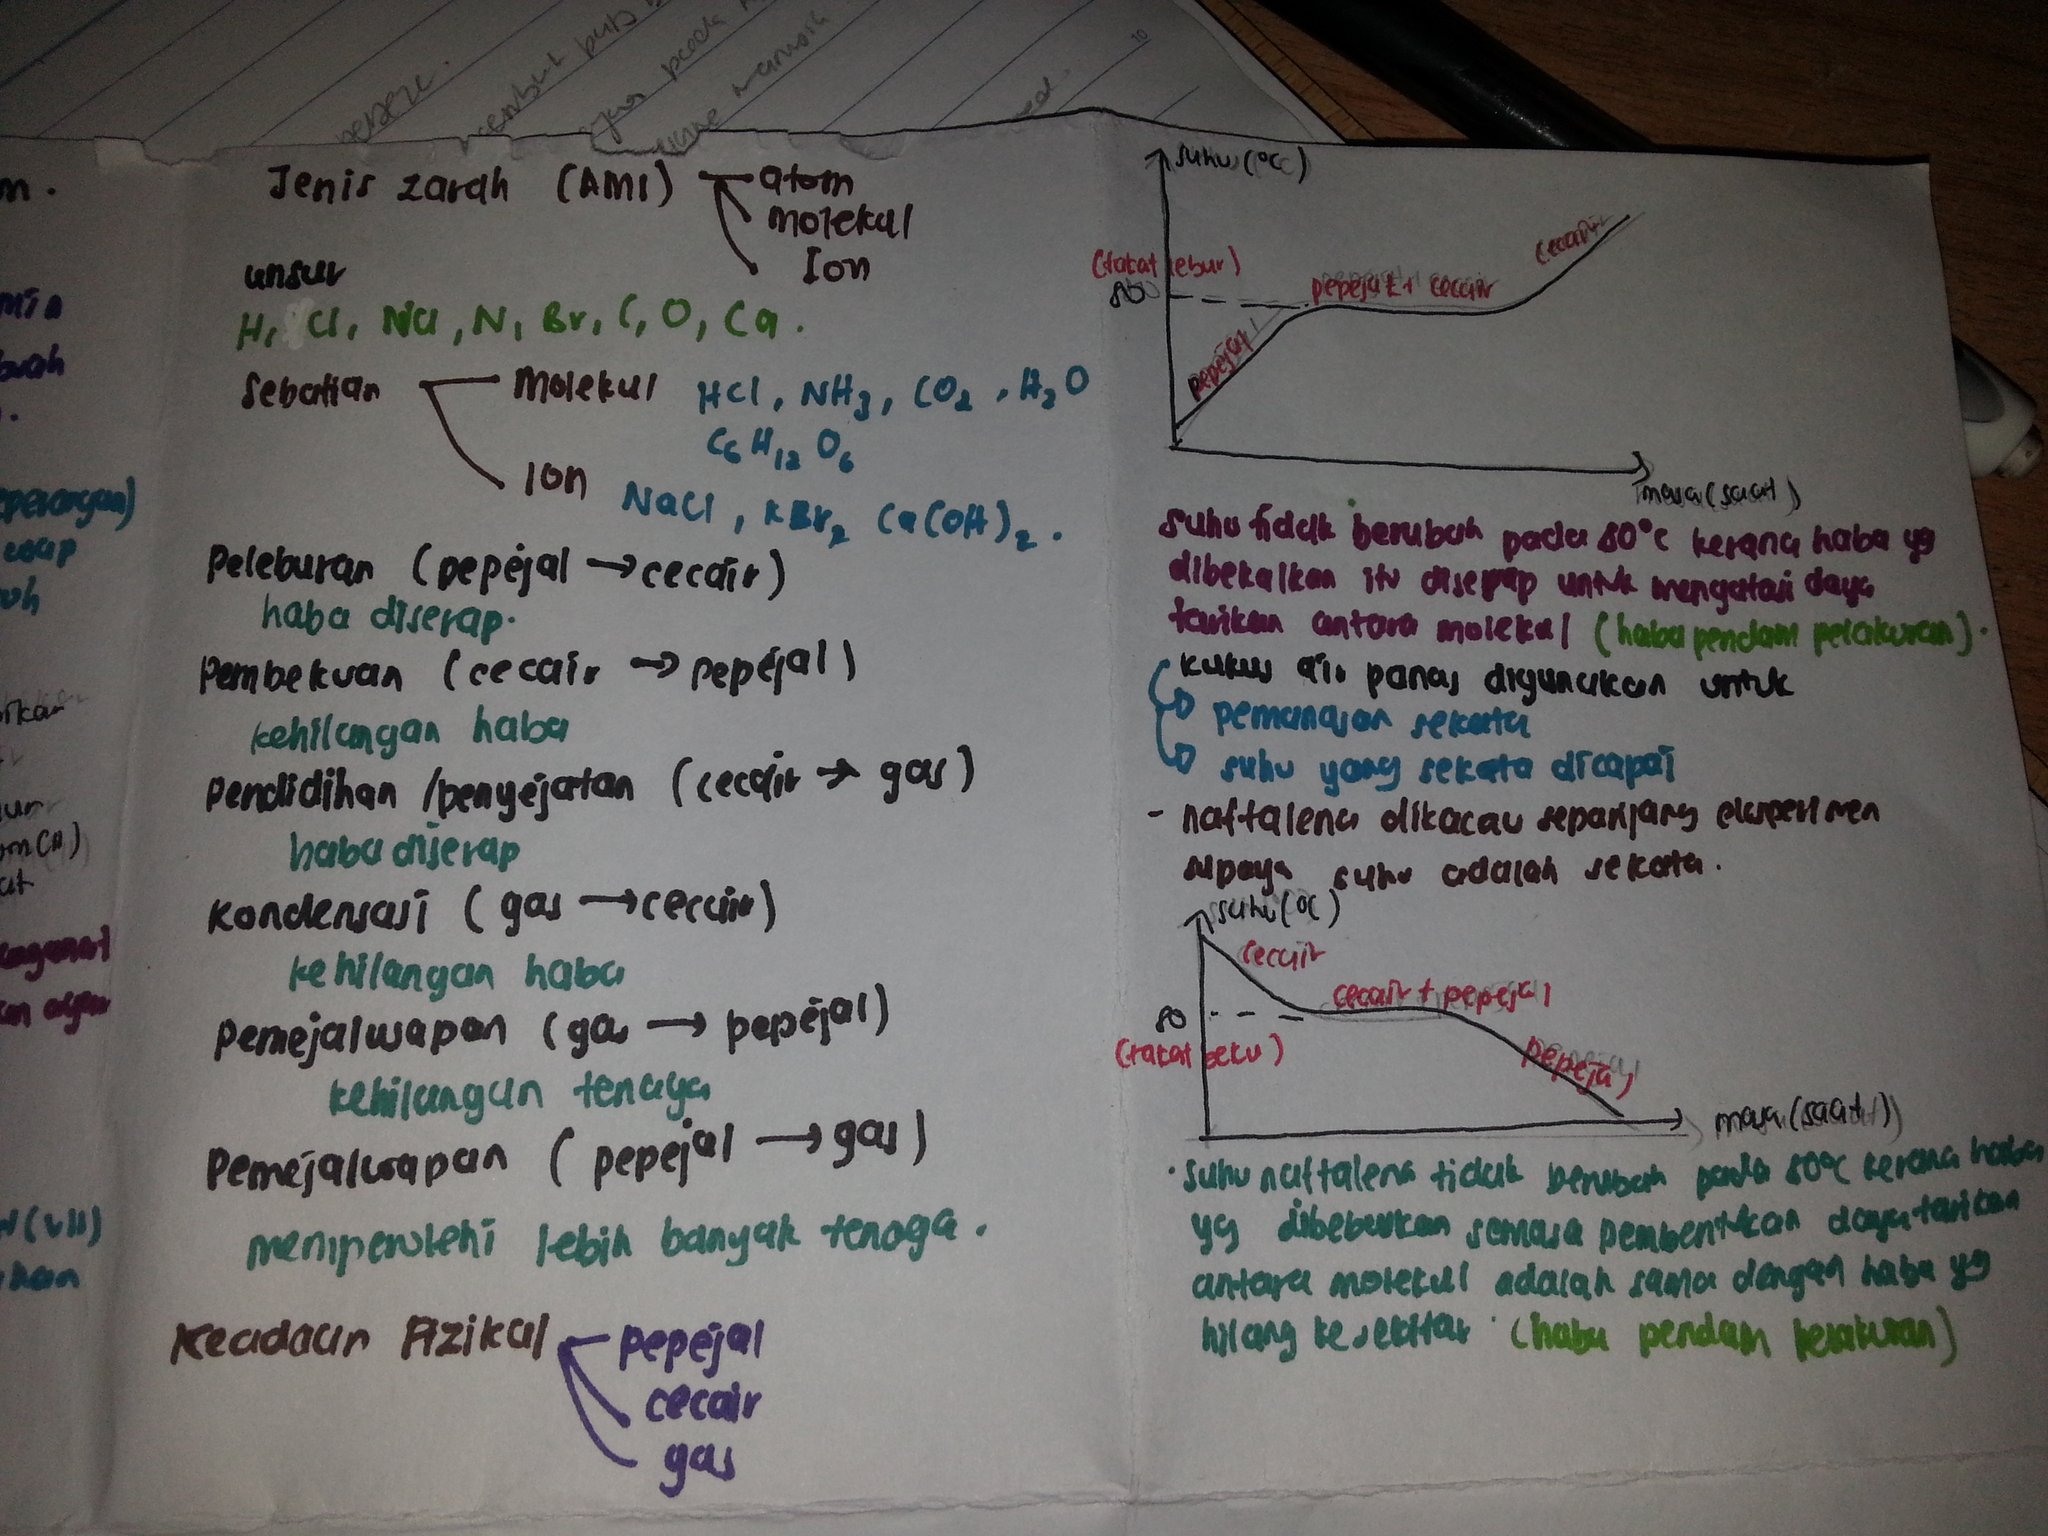 Jenis zarah (AMI)
atom
molekul
Ion
unsur
H, Cl, Na, N, Br, C, O, Ca.
Sebatian
Molekul HCl, NH3, CO2, H2O
C6H12O6
Ion NaCl, KBr2 Ca(OH)2.
Peleburan (pepejal → cecair)
haba diserap.
Pembekuan (cecair → pepejal)
kehilangan haba
Pendidihan /penyejatan (cecair → gas)
haba diserap
Kondensasi (gas → cecair)
kehilangan haba
Pemejalwapan (gas → pepejal)
kehilangan tenaga
Pemejalwapan (pepejal → gas)
memperolehi lebih banyak tenaga.
Keadaan Fizikal
pepejal
cecair
gas
suhu (°C)
(takat lebur)
80
pepejal
pepejal + cecair
cecair
masa (saat)
suhu tidak berubah pada 80°C kerana haba yg
dibekalkan itu diserap untuk mengatasi daya
tarikan antara molekul (haba pendam pelakuran).
kukus air panas digunakan untuk
pemanasan sekata
suhu yang sekata dicapai
- naftalena dikacau sepanjang eksperimen
supaya suhu adalah sekata.
suhu (°C)
cecair
cecair + pepejal
80
(takat beku)
pepejal
masa (saat)
· suhu naftalena tidak berubah pada 80°C kerana haba
yg dibebaskan semasa pembentukan daya tarikan
antara molekul adalah sama dengan haba yg
hilang ke sekitar (haba pendam